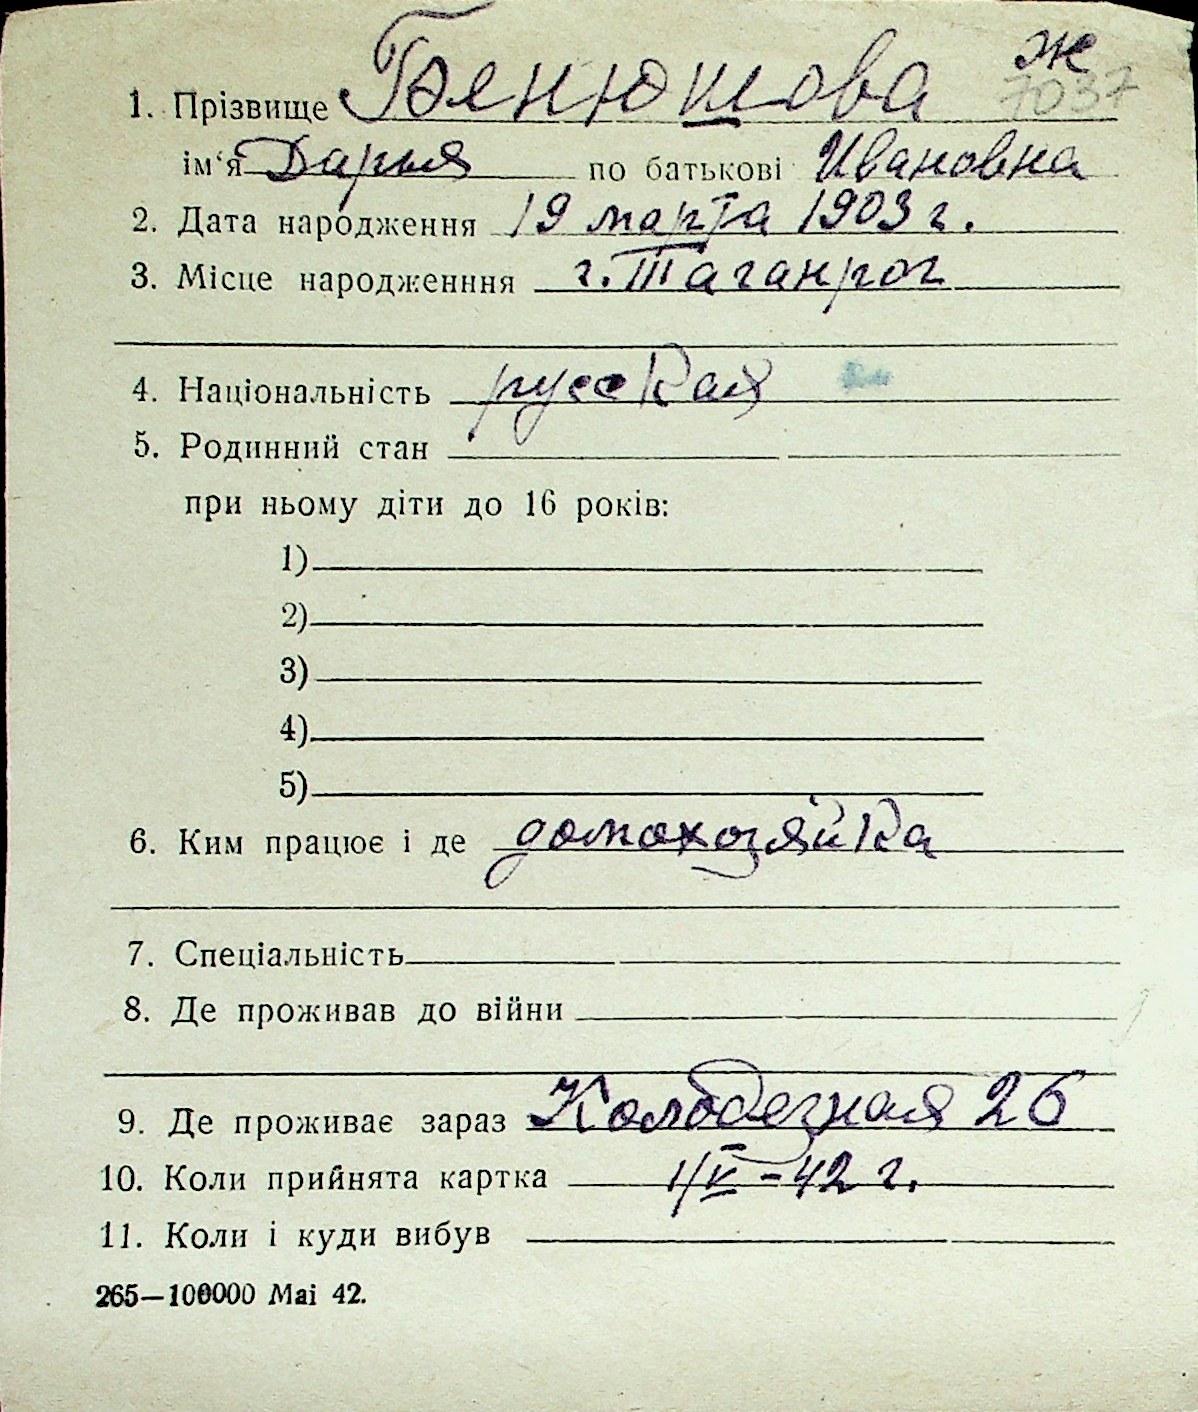 ж
1. Прізвище Бенюшова 7037
ім‘я Дарья по батькові Ивановна
2. Дата народження 19 марта 1903 г.
3. Місце народженння г. Таганрог
4. Національність русская
5. Родинний стан
при ньому діти до 16 років:
1)
2)
3)
4)
5)
6. Ким працює і де домохозяйка
7. Спеціальність
8. Де проживав до війни
9. Де проживає зараз Колодезная 26
10. Коли прийнята картка 1/V-42 г.
11. Коли і куди вибув
265—100000 Mai 42.